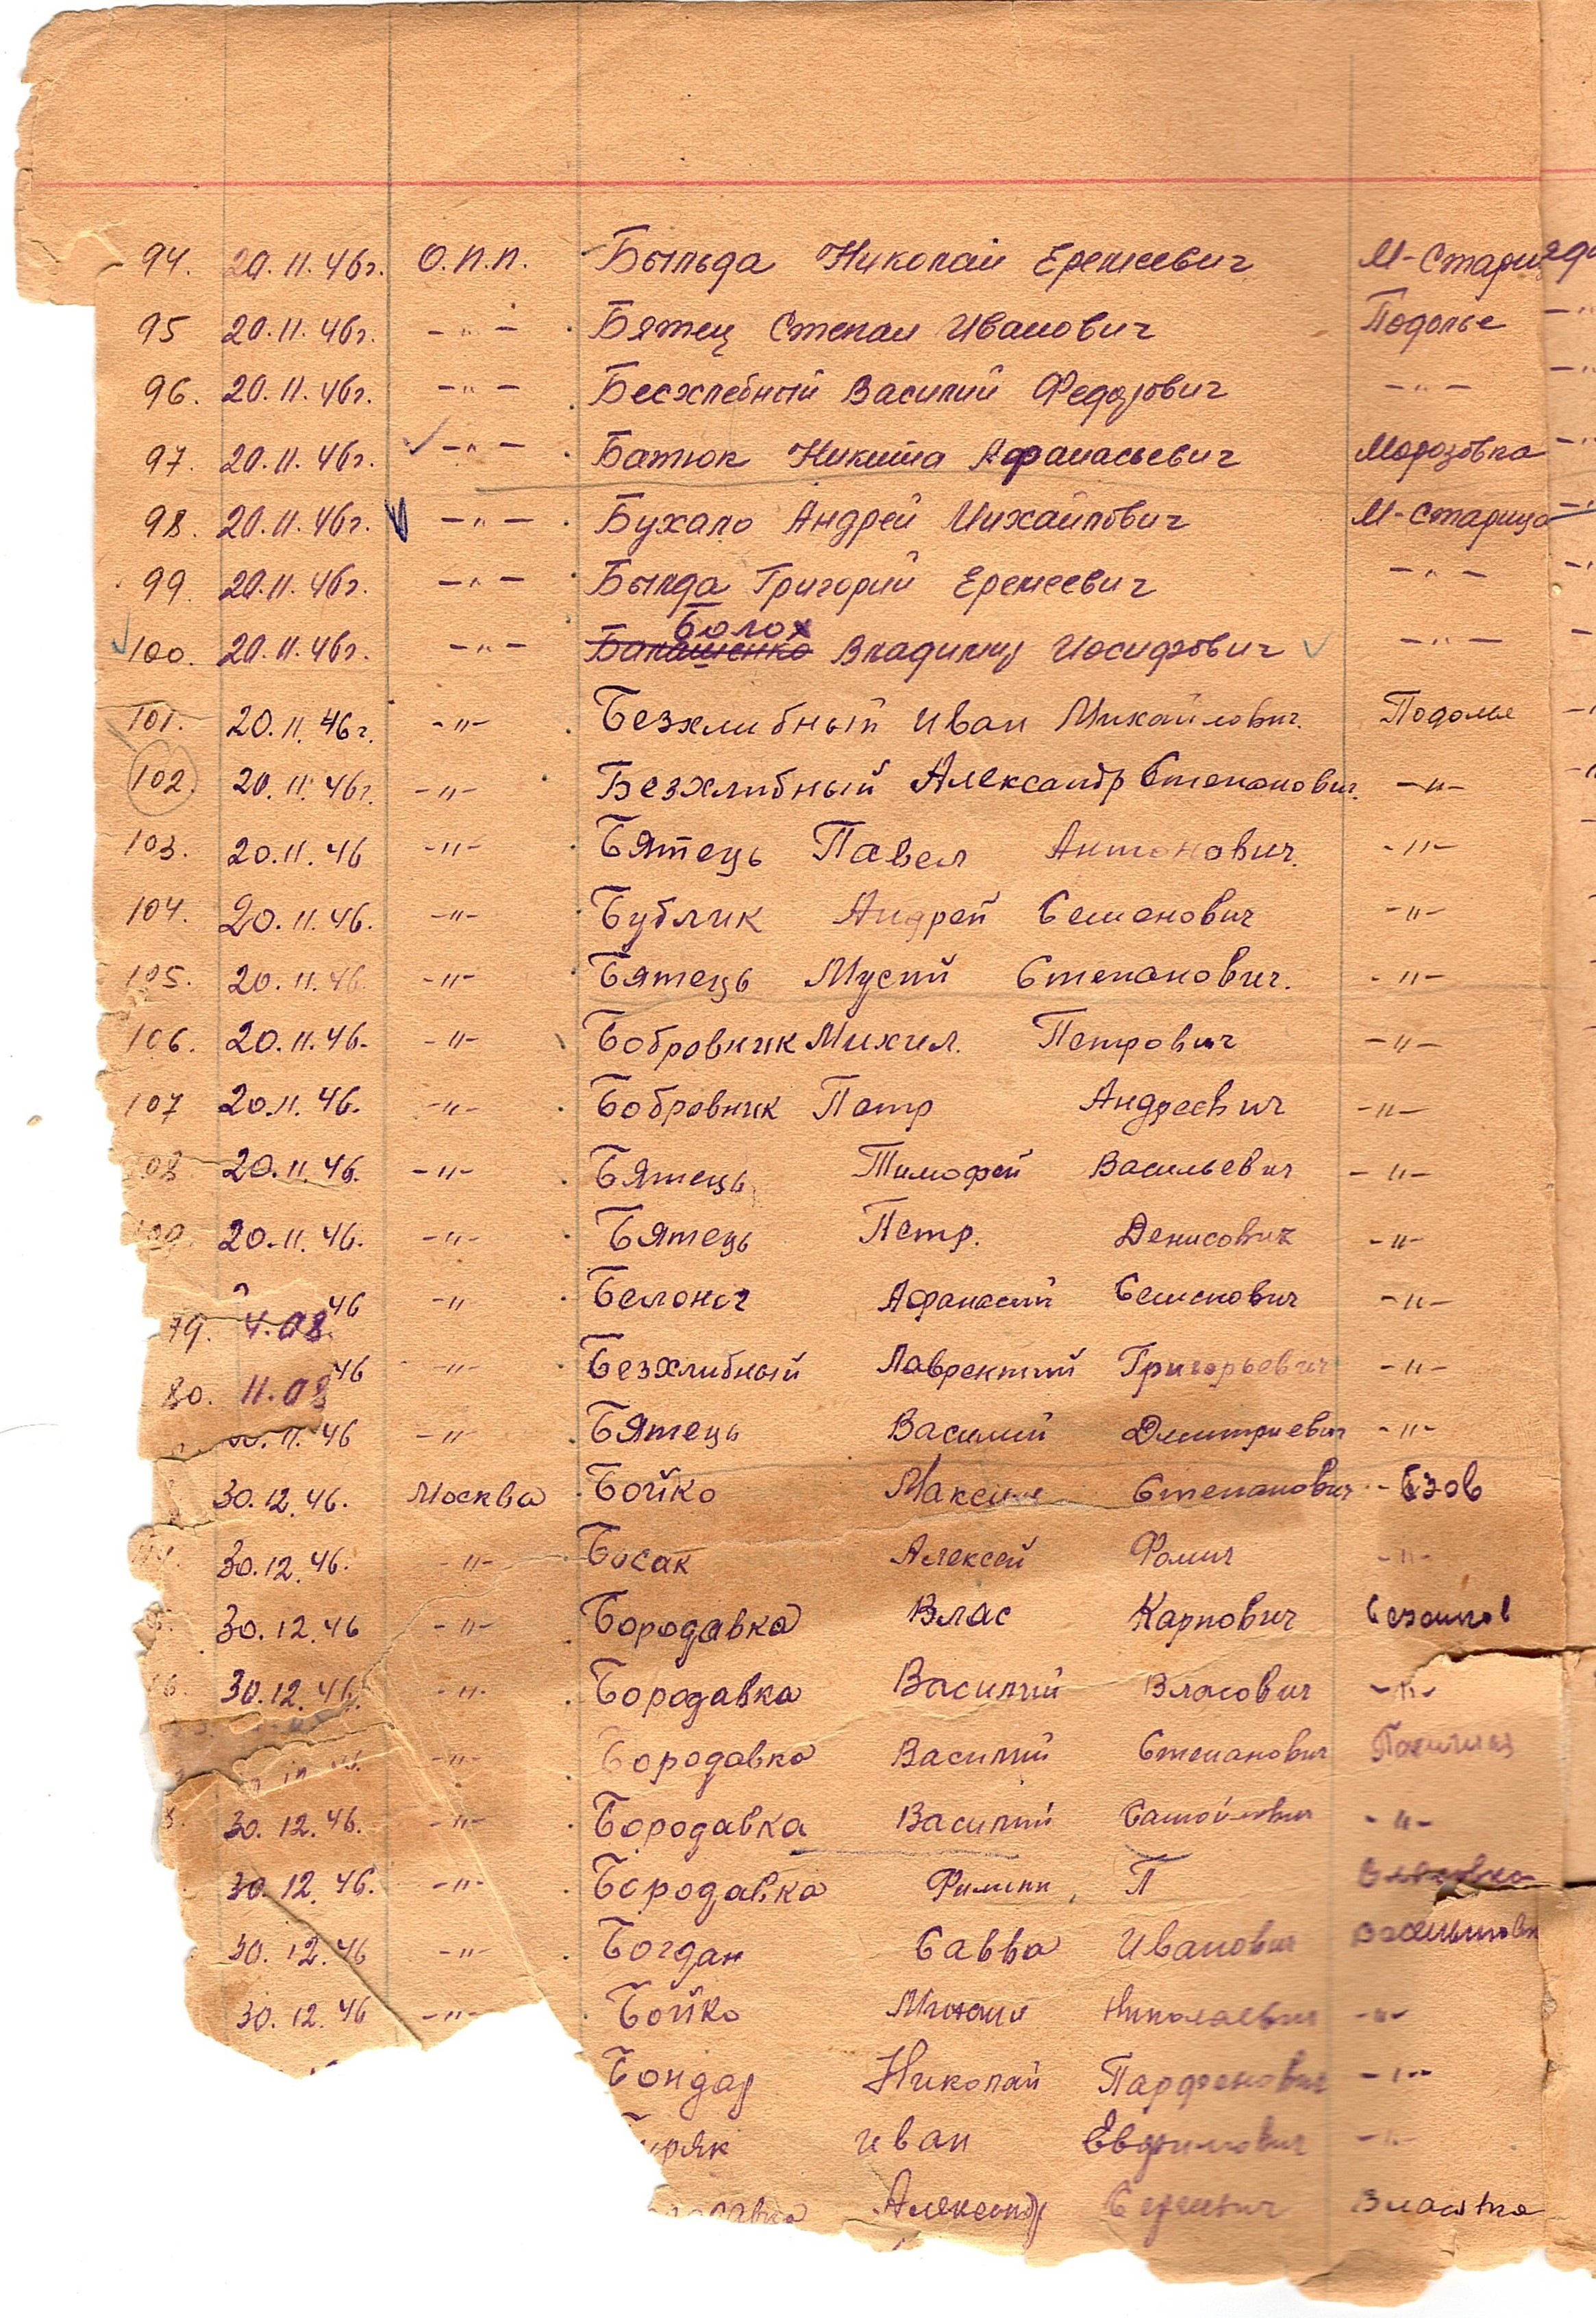 94. 20.11.46г. О.П.П. Былбда Николай Еремеевич М-Стариц
95 20.11.46г. -"- Бятец Степан Иванович Подолье
96. 20.11.46г. -"- Бесхлебный Василий Федорович -"-
97. 20.11.46г. -"- Батюк Никита Афанасьевич Морозовка
98. 20.11.46г. -"- Бухало Андрей Михайлович М-Старица
99. 20.11.46г. -"- Былда Григорий Еремеевич -"-
Болох
100. 20.11.46г. -"- Балашенко Владимир Иосифович -"-
101. 20.11.46г. -"- Безхлибный Иван Михайлович. Подолье
102. 20.11.46г. -"- Безхлибный Александр Степанович. -"-
103. 20.11.46 -"- Бятець Павел Антонович. -"-
104. 20.11.46. -"- Бублик Андрей Семенович -"-
105. 20.11.46. -"- Бятець Мусий Степанович. -"-
106. 20.11.46. -"- Бобровник Михил. Петрович -"-
107 20.11.46. -"- Бобровник Петр Андреевич -"-
108 20.11.46. -"- Бятець Тимофей Васильевич -"-
109. 20.11.46. -"- Бятець Петр. Денисович -"-
79. 4.08. 46 -"- Афанасий Семенович -"-
80. 11.08 46 -"- Безхлибный Лаврентий Григорьевич -"-
11.46 -"- Бятець Василий Дмитриевич -"-
30.12.46. Москва Бойко Максим Степанович -
30.12.46. -"- Босак Алексей Фомич -"-
30.12.46 -"- Бородавка Влас Карпович
30.12.46. -"- Бородавка Василий Власович -"-
-"- Бородавка Василий Степанович
30.12.46. -"- Бородавка Василий Самойлович -"-
30.12.46. -"- Бородавка Филипп, П
30.12.46 -"- Богдан Савва Иванович
30.12.46 -"- Бойко Михаил Николаевич -"-
Бондар Николай Парфенович -"-
иряк Иван Евфимович -"-
Александр Сергеевич